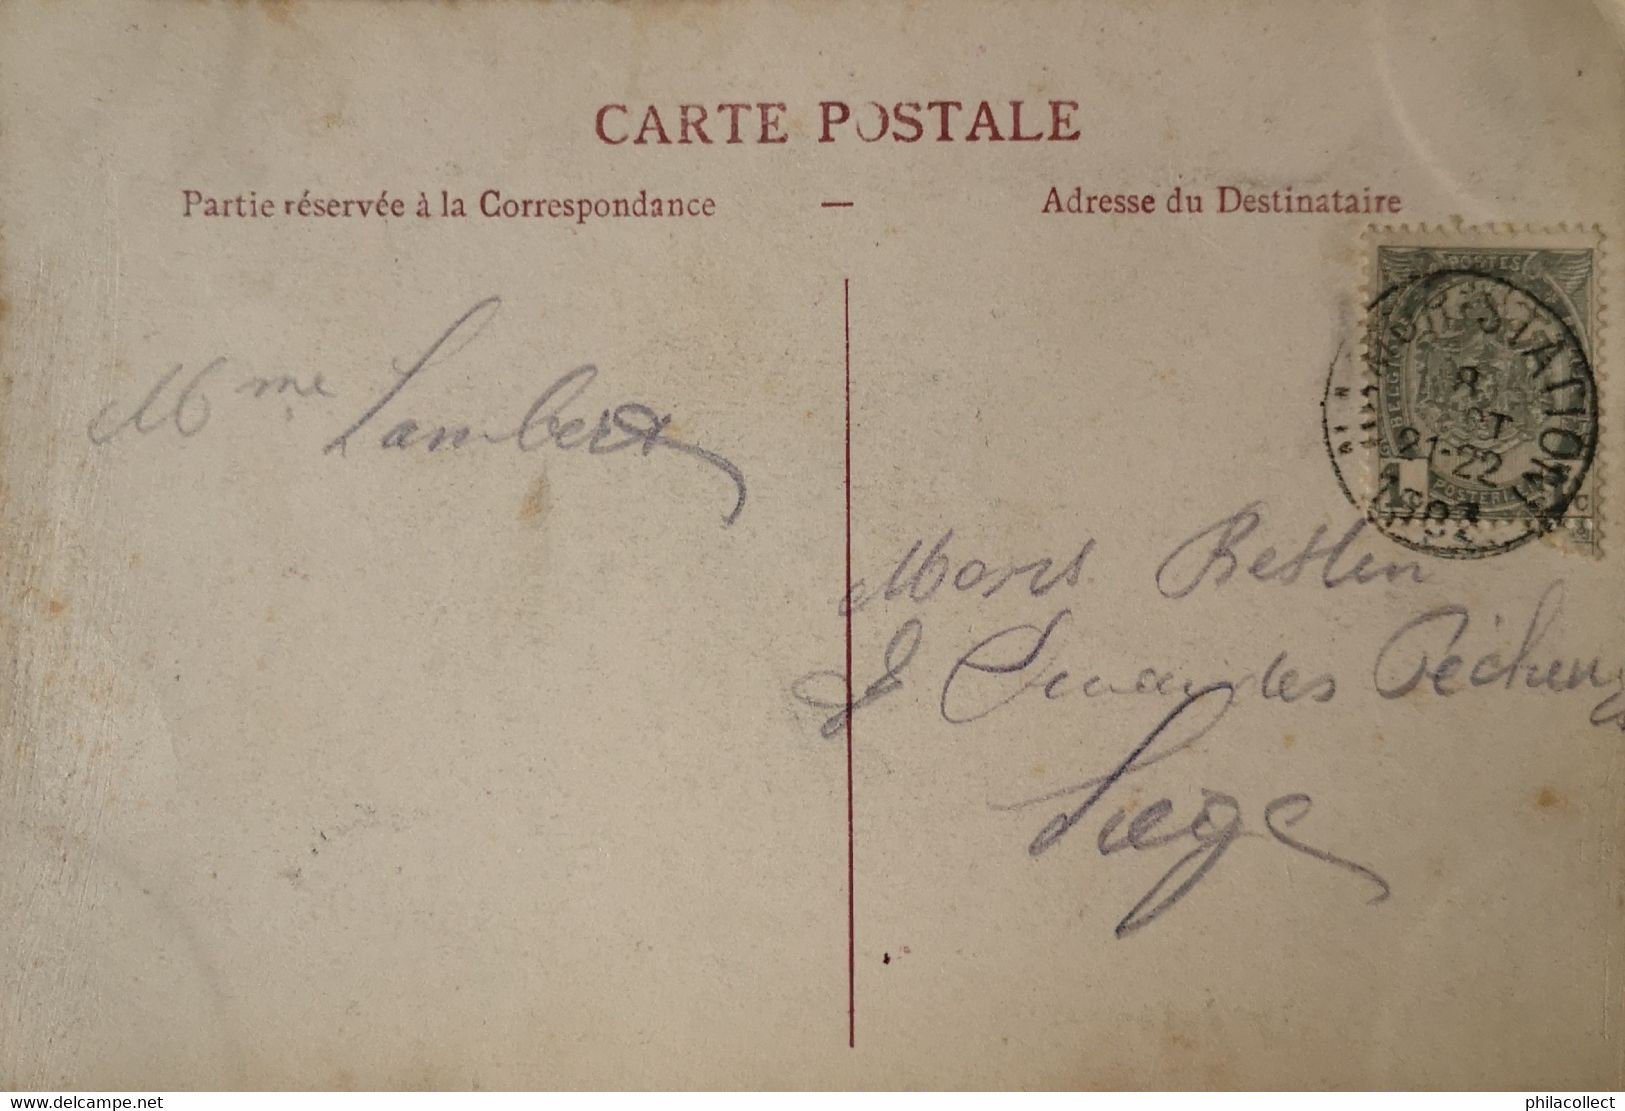 CARTE POSTALE
Partie réservée à la Correspondance — Adresse du Destinataire
POSTES
BELGIQUE
STATION
8
21-22
Mme Lambert
8 Quai des Pêcheurs
Liège
delcampe.net
philacollect